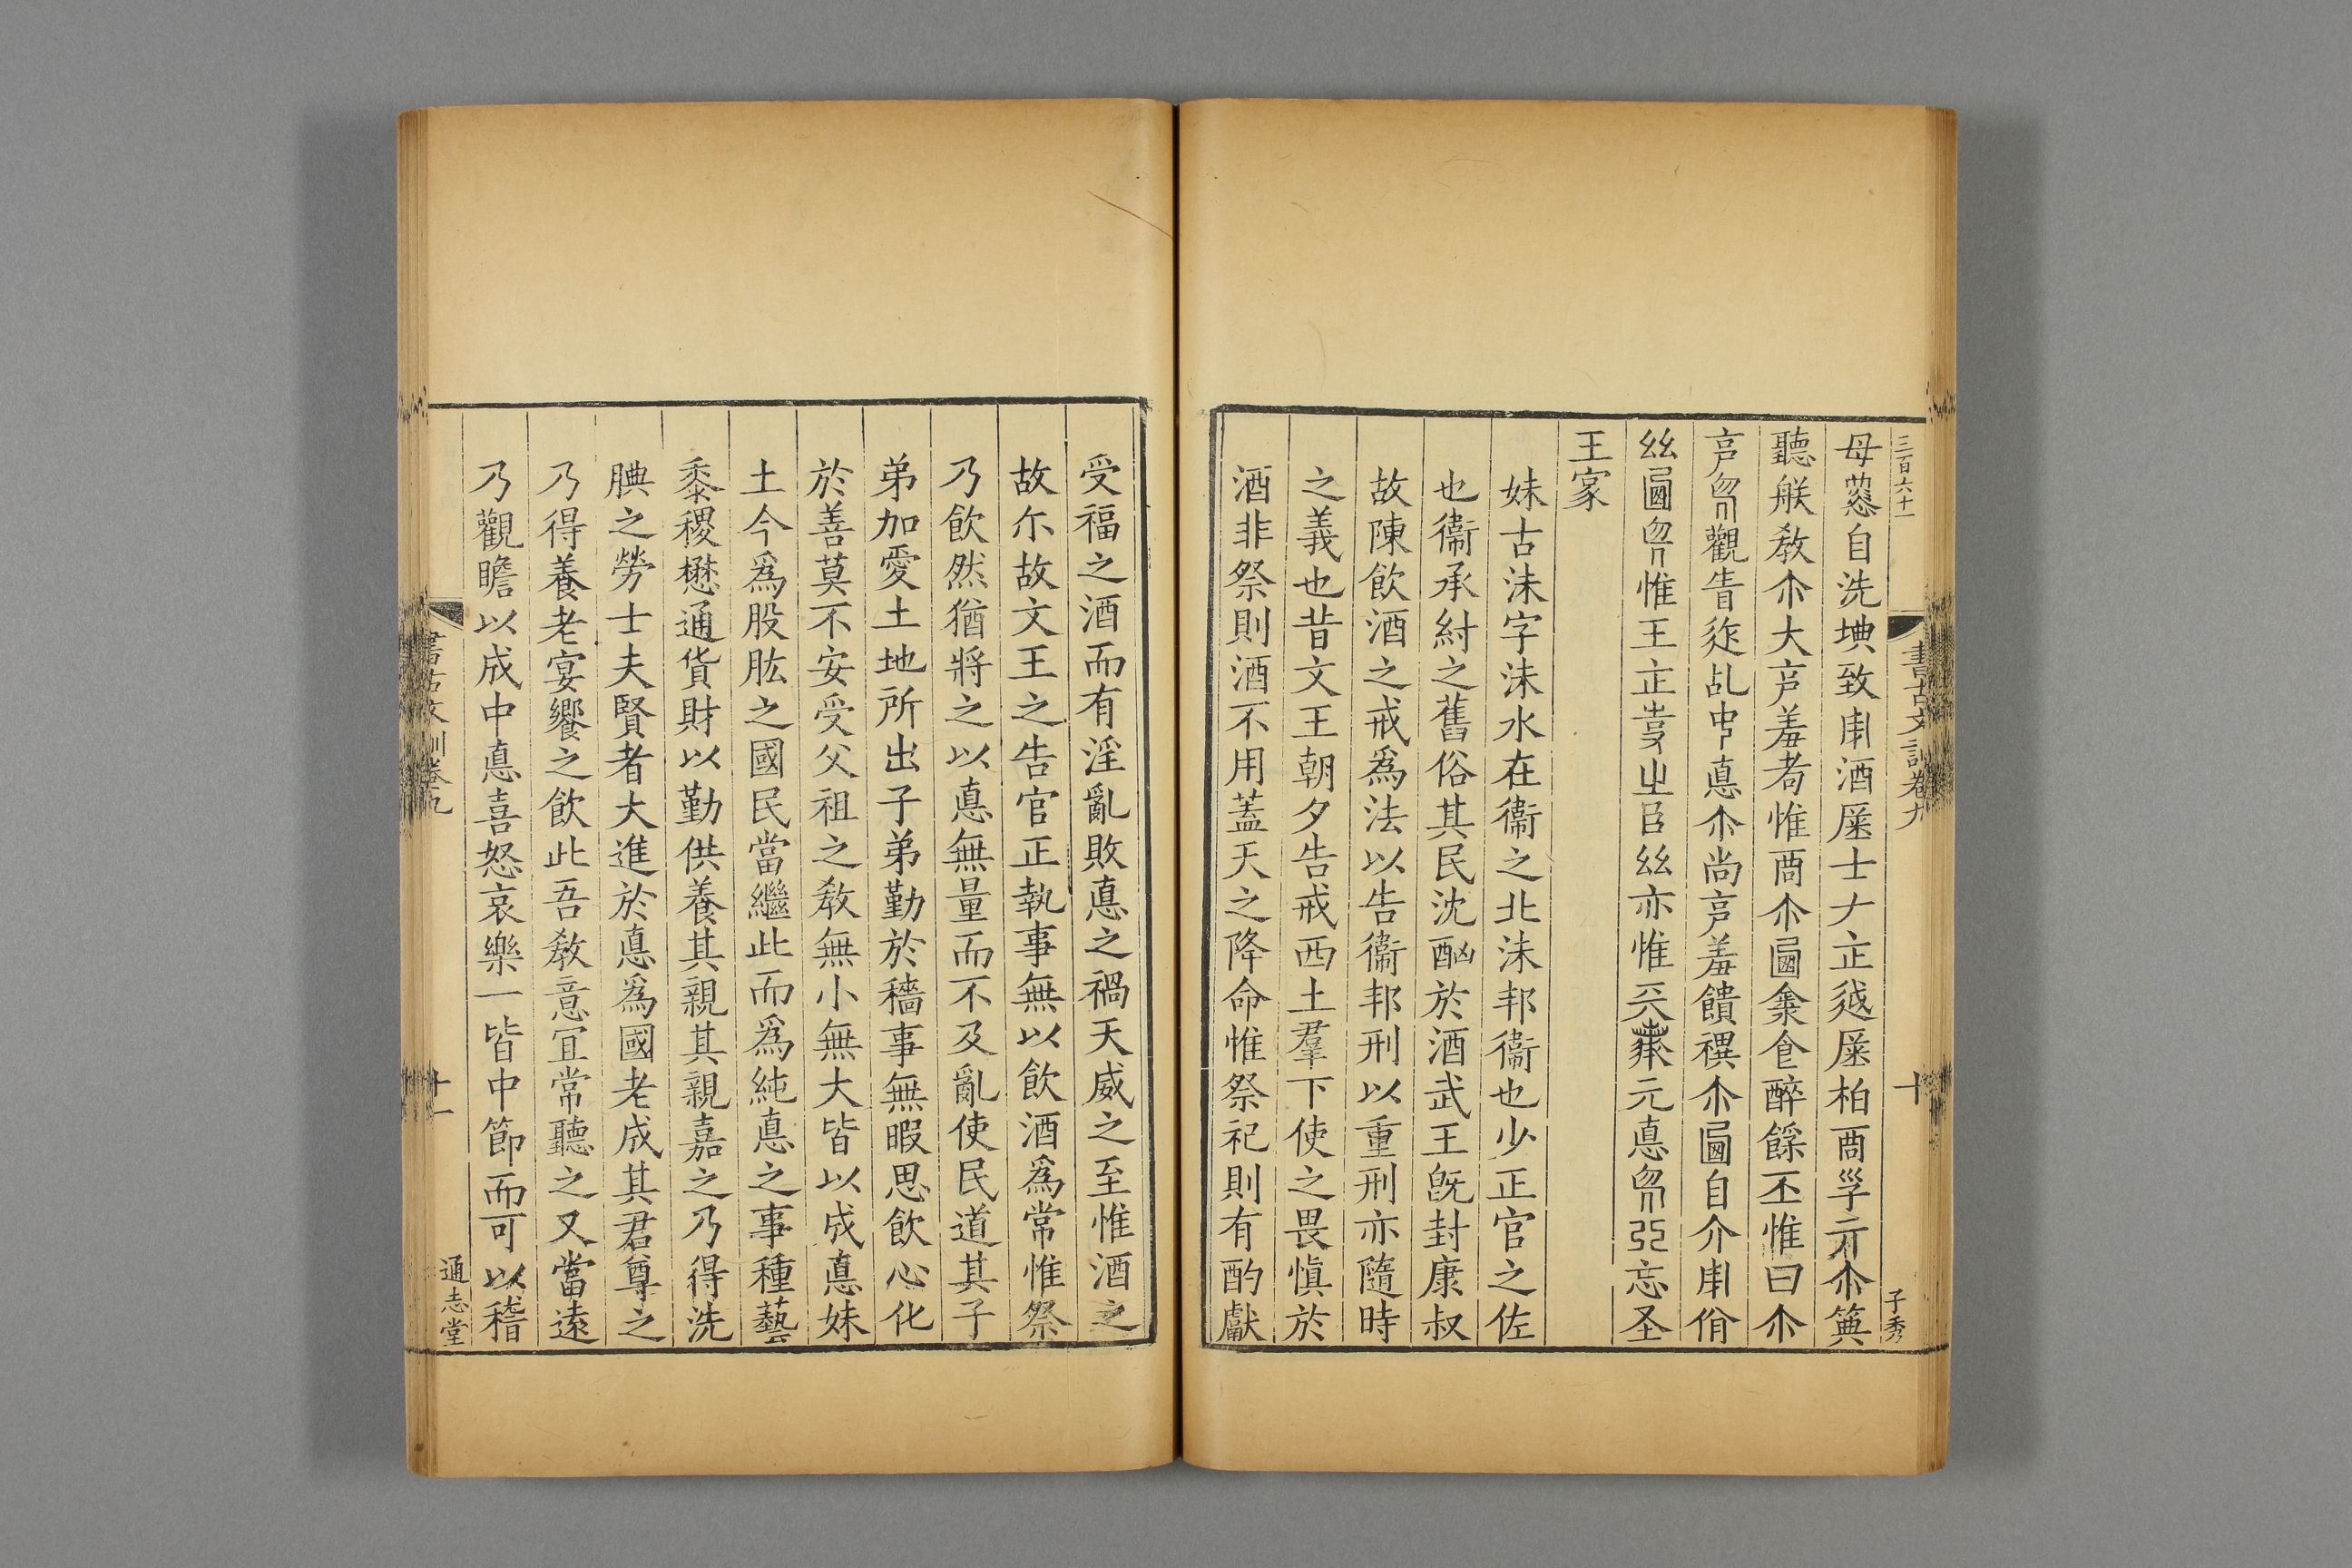 三百六十一
書古文訓卷九
十
子秀
母慶自洗㙉致𤰃酒庶士ナ正𨒋庶柏啇孚亓尒䇬
聽朕教尒大亯羞耇惟啇尒圖𠆸食醉餘丕惟曰尒
亯𠒅觀眚𨒪乩𠁦悳尒尚亯羞饋禩尒圖自介𤰃佾
丝圖𠒅惟王正𡴀㞢臣丝亦惟兲𢡆元悳𠒅亞忘圣
王家
妹古沬字沬水在衞之北沬邦衞也少正官之佐
也衞承紂之舊俗其民沈酗於酒武王旣封康叔
故陳飮酒之戒爲法以告衞邦刑以重刑亦隨時
之義也昔文王朝夕告戒西土羣下使之畏愼於
酒非祭則酒不用蓋天之降命惟祭祀則有酌獻
受福之酒而有淫亂敗悳之禍天威之至惟酒之
故尒故文王之告官正執事無以飮酒爲常惟祭
乃飮然猶將之以悳無量而不及亂使民道其子
弟加愛土地所出子弟勤於穡事無暇思飮心化
於善莫不安受父祖之教無小無大皆以成悳妹
土今爲股肱之國民當繼此而爲純悳之事種藝
黍稷懋通貨財以勤供養其親其親嘉之乃得洗
腆之勞士夫賢者大進於悳爲國老成其君尊之
乃得養老宴饗之飮此吾教意宜常聽之又當遠
乃觀瞻以成中悳喜怒哀樂一皆中節而可以稽
書古文訓卷九
十一
通志堂